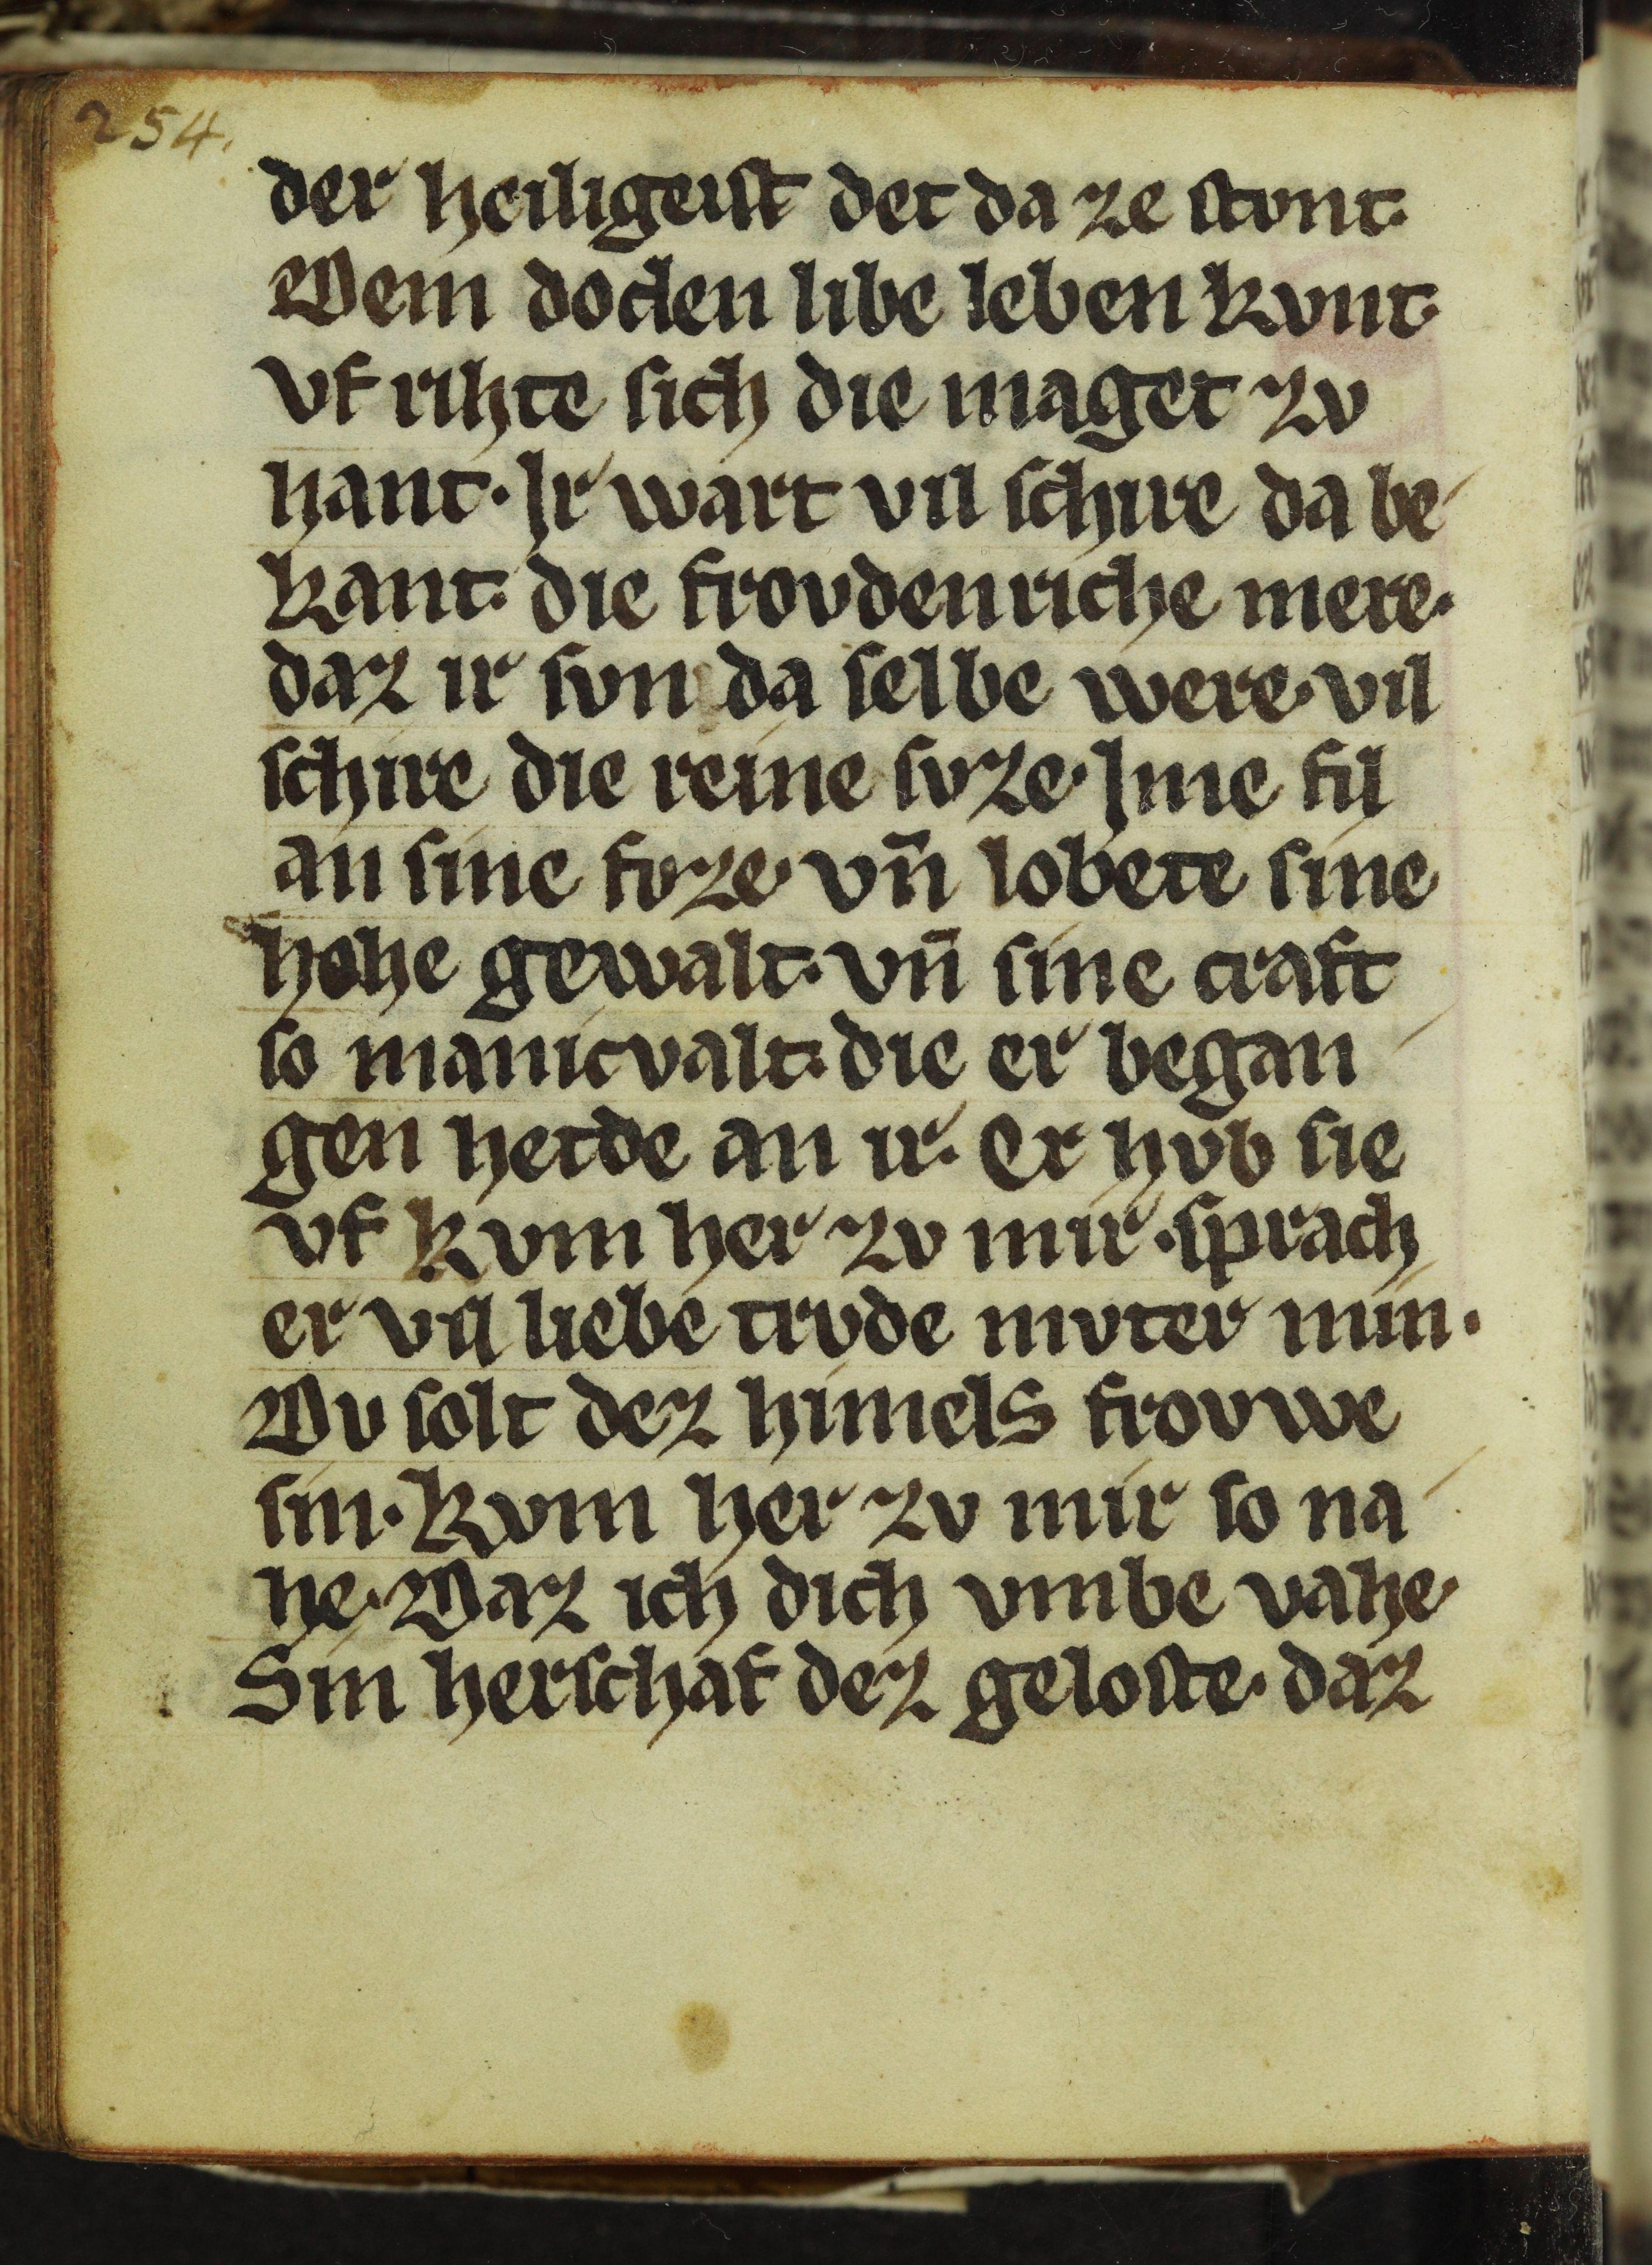 254.
der heiligeist det da ze stvnt·
Dem doden libe leben kvnt·
vf rihte sich die maget zv
hant· Ir wart vil schire da be
kant· die frovdenriche mere·
daz ir svn da selbe were· vil
schire die reine svze· Ime fil
an sine fvze· vn̄ lobete sine
hohe gewalt· vn̄ sine craft
so manicvalt· die er began
gen hetde an ir· Er hvb sie
vf kvm her zv mir· sprach
er vil liebe trvde mvter min·
Dv solt dez himels frovwe
sin· kvm her zv mir so na
he· Daz ich dich vmbe vahe·
Sin herschaf dez geloste· daz